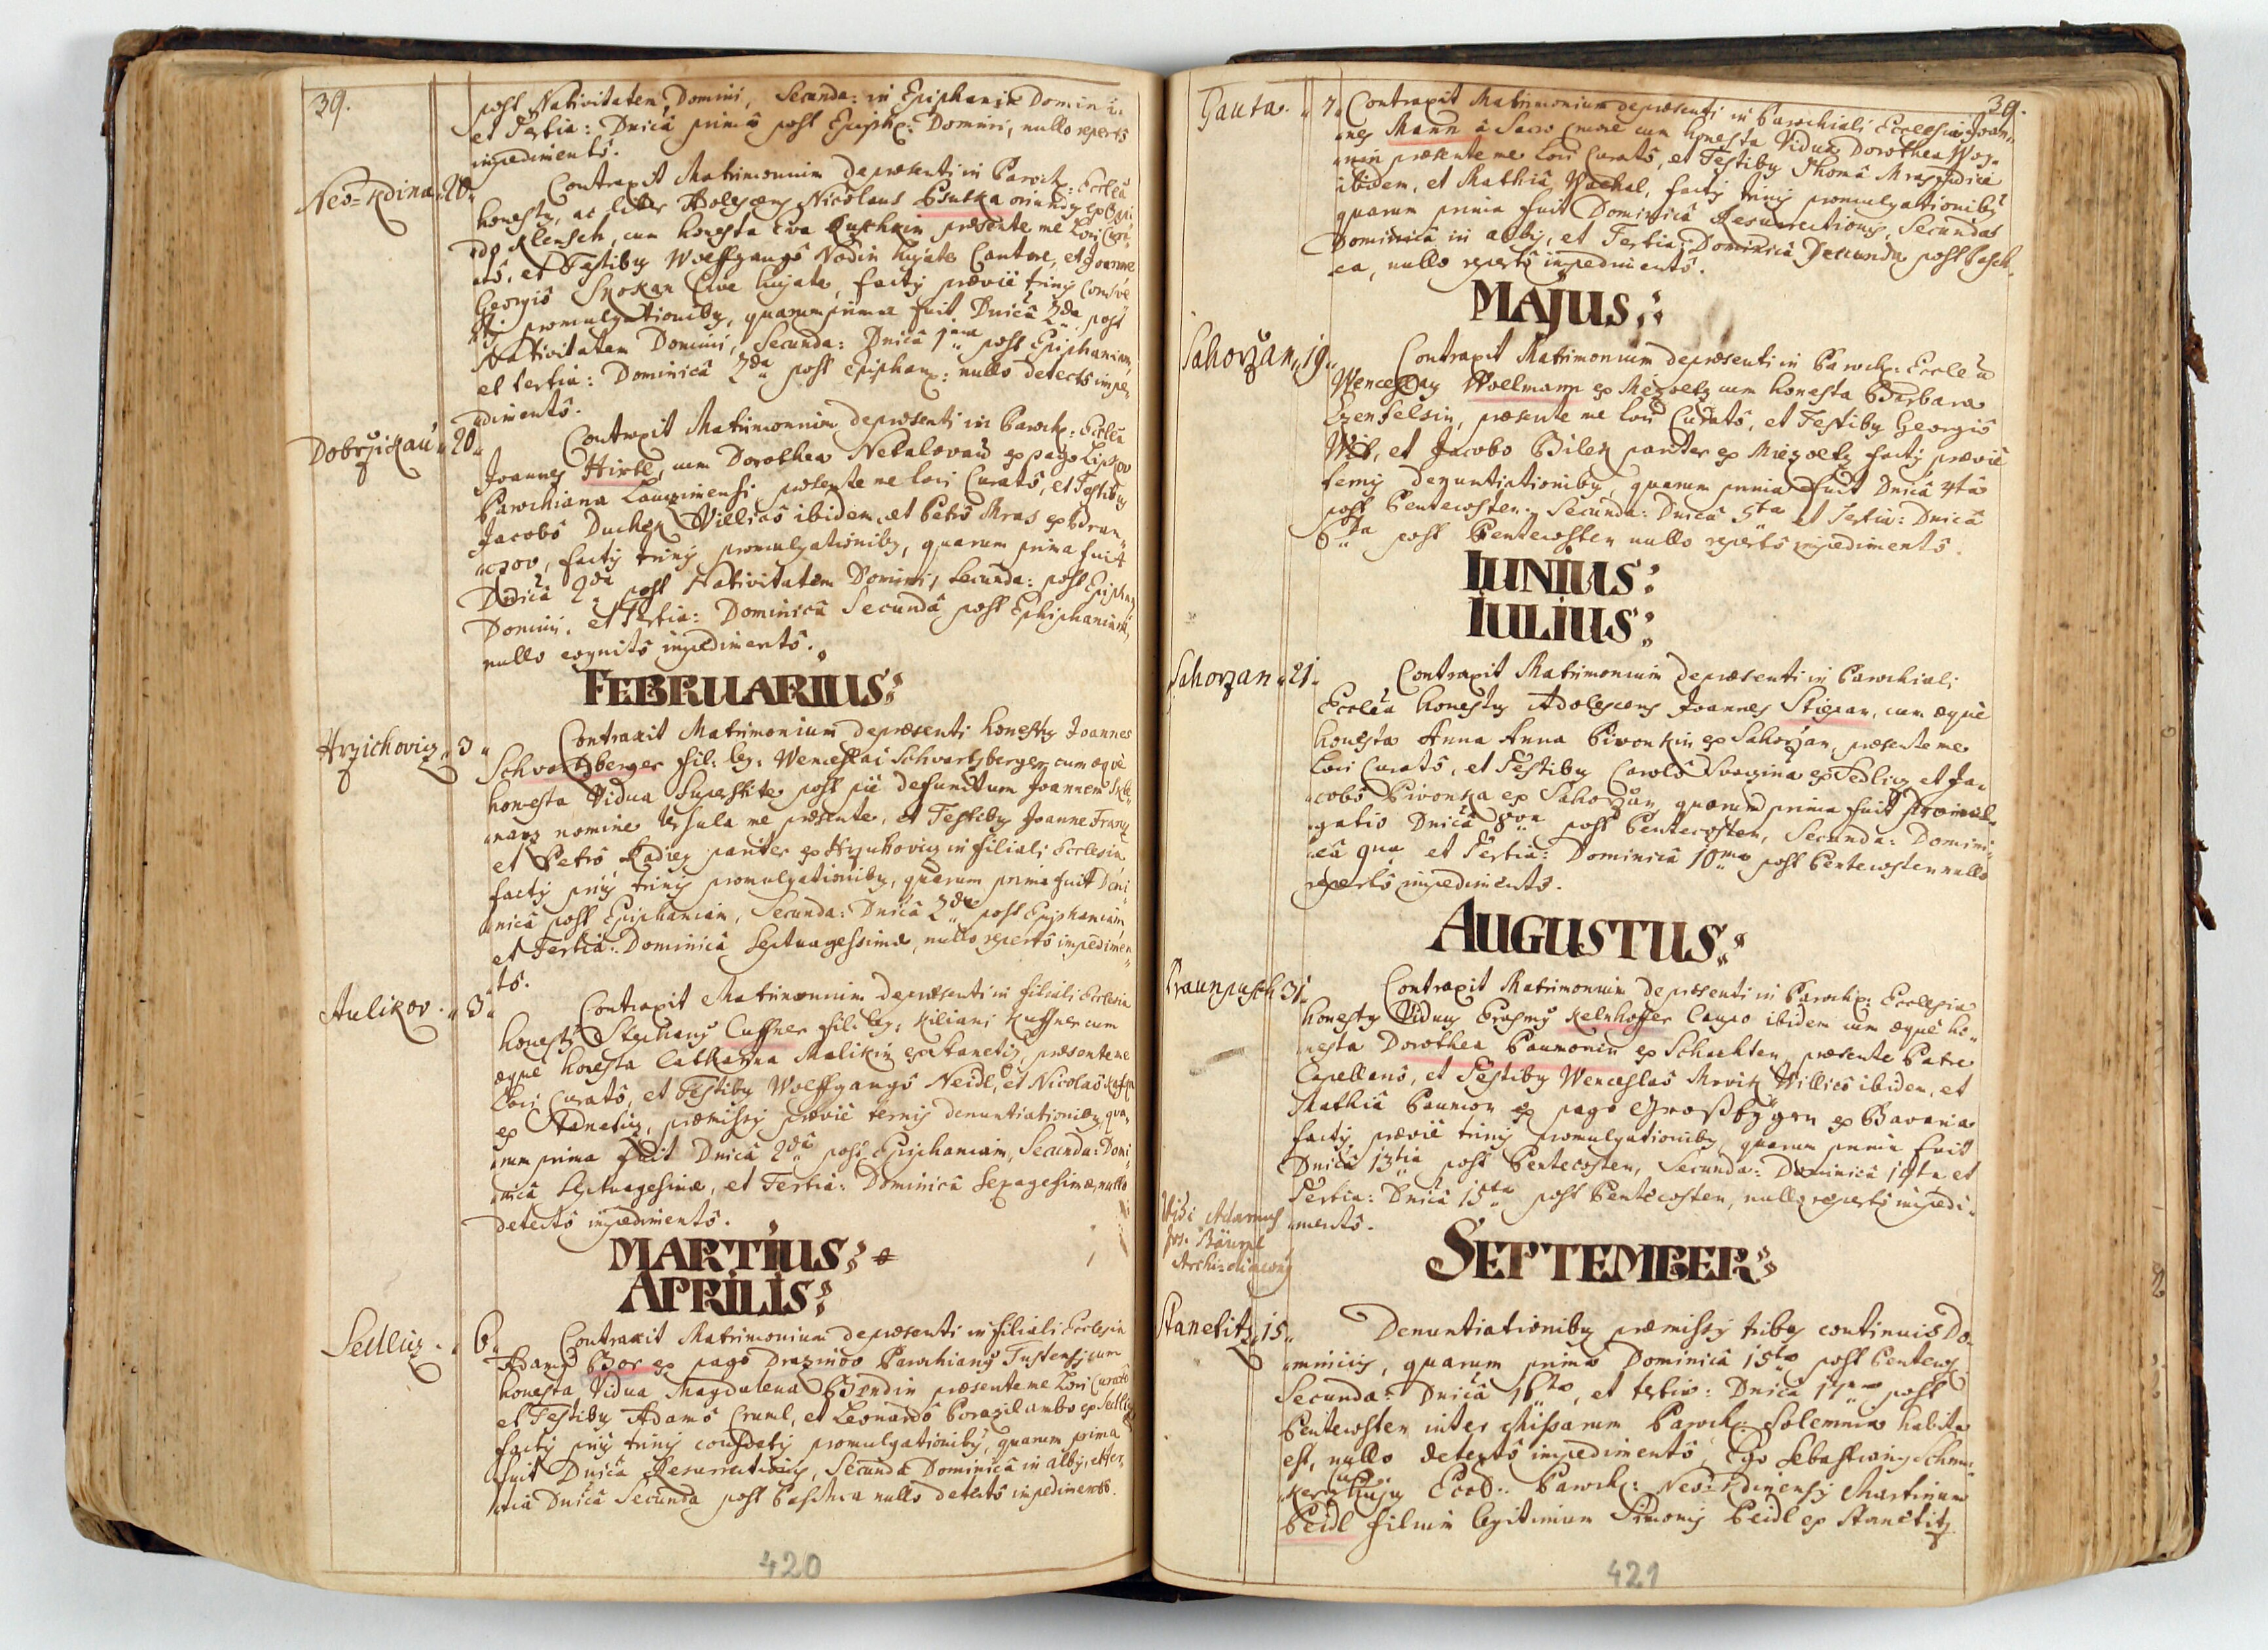 39.
post Nativitatem Domini, Secunda: in Epiphania Domini.
et Tertia: Dnicâ primâ post Epiph: Domini, nullo repertô
impedimentô.
Neo-Kdina. 20.
Contraxit Matrimonium depræsenti in Paroch: Ecclâ
honestus, ac liber Adolescens Nicolaus Psutka oriundus ex
Klensch, cum honesta Eva præsente me Loci Cura-
tô, et Testibus Wolffgangô Nodin hujate Cantore, et Joanne
Georgiô Skokan Cive hujate, factis præviè trinis
promulgationibus, quarum prima fuit Dnicâ 2da post
Nativitatem Domini, Secunda: Dnicâ 1ma post Epiphaniam,
et tertia: Dominicâ 2da post Epiphan: nullo detectô impe-
dimentô.
Dobrzikau. 20.
Contraxit Matrimonium depræsenti in Paroch: Ecclâ
Joannes Hirtl, cum Dorothea ex pago
Parochiana præsente me Loci Curatô, et Testibus
Jacobô Duchek Villicô ibidem, et Petrô Mras ex
factis trinis promulgationibus, quarum prima fuit
Dnicâ 2da post Nativitatem Domini, Secunda: post Epiphan
Domini, et Tertia: Dominicâ Secundâ post Ephiphaniam,
nullo cognitô impedimentô.
FEBRUARIUS:
Hrzichowiz. 3.
Contraxit Matrimonium depræsenti honestus Joannes
Schvartzberger fil: leg: Wenceslai Schvartzberger, cum æquè
honesta Vidua Superstite post piè defunctum Joannem
nomine Ursula me præsente, et Testibus Joanne
et Petrô pariter ex in filiali Ecclesia
factis priis trinis promulgationibus, quarum prima fuit Domi-
nicâ post Epiphaniam, Secunda: Dnicâ 2da post Epiphaniam,
et Tertia: Dominicâ Septuagessimæ, nullo repertô impedimen-
tô.
Aulikov. 3.
Contraxit Matrimonium depræsenti in filiali Ecclesia
honestus Stephanus Cuffner fil: leg: Kiliani Kuffner cum
æquè honesta Catharina Malikin ex Stanetiz, præsente me
Loci Curatô, et Testibus Wolffgangô Neidl, et Nicolaô
ex Stanetiz, præmissis præviè ternis denuntiationibus, qua-
rum prima fuit Dnicâ 2dâ post Epiphaniam, Secunda: Domi-
nicâ Septuagesimæ, et Tertia: Dominicâ Sexagesimæ, nullo
detectô impedimentô.
MARTIUS:
APRILIS:
Sedliz. 6.
Contraxit Matrimonium depræsenti in filiali Ecclesia
Adamus Bor ex pago Drazinov Parochianus Tustensis cum
honesta Vidua Magdalena præsente me Loci Curatô
et Testibus Adamô Cruml, et Leonardô Porazil ambo ex Sedliz
factis priis trinis promulgationibus, quarum prima
fuit Dnicâ Resurrectionis, Secunda Dominicâ in albis, et ter-
tia Dnicâ Secunda post Pascha nullo detectô impedimentô.
420
39.
Gauta. 7.
Contraxit Matrimonium depræsenti in Parochiali Ecclesia Joan-
nes Mann cum honesta Vidua Dorothea
præsente me Loci Curatô, et Testibus Thomâ Mras Judice
ibidem, et Mathiâ Wachal, factis trinis promulgationibus
quarum prima fuit Dominicâ Resurrectionis, Secunda
Dominicâ in albis, et Tertia: Dominicâ Secunda post Pasch-
ca, nullo repertô impedimentô.
MAJUS:
Sahorzan. 19.
Contraxit Matrimonium depræsenti in Paroch: Ecclâ
Wenceslaus Woelmann ex cum honesta Barbara
præsente me Loci Curatô, et Testibus Georgiô
et Jacobo Bilek pariter ex factis præviè
ternis denuntiationibus, quarum prima fuit Dnicâ 4tâ
post Pentecosten: Secunda: Dnicâ 5ta et Tertia: Dnicâ
6ta post Pentecosten nullo repertô impedimentô.
IUNIUS:
IULIUS:
Sahorzan. 21.
Contraxit Matrimonium depræsenti in Parochiali
Ecclâ honestus Adolescens Joannes Stiepan, cum æquè
honesta Anna Anna Pivonkin ex Sahorzan, præsente me
Loci Curatô, et Testibus Carolô ex Sedliz et Ja-
cobô Pivonka ex Sahorzan, quarum prima fuit promul-
gatio Dnicâ 8va post Pentecosten, Secunda: Domini-
câ 9na et Tertia: Dominicâ 10ma post Pentecosten nullo
repertô impedimentô.
AUGUSTUS:
Braunpusch 31.
Contraxit Matrimonium depræsenti in Paroch: Ecclesia
honestus Viduus Erasmus Kelnhoffer Caupo ibidem cum æquè ho-
nesta Dorothea Paumonin ex Schachten, præsente Patre
Capellanô, et Testibus Wenceslaô Mrvik Villicô ibidem, et
Mathiâ Paumon ex pagô ex Bavaria
factis præviè trinis promulgationibus, quarum prima fuit
Dnicâ 13tia post Pentecosten, Secunda: Dominicâ 14ta et
Tertia: Dnicâ 15ta post Pentecosten, nullo repertô impedi-
mentô.
Vidi Adamus
Jos: Bäuml
Archidiaconus
SEPTEMBER:
Stanetitz. 15.
Denuntiationibus præmissis tribus continuis Do-
minicis, quarum prima Dominicâ 15ta post Pentecos
Secunda: Dnicâ 16ta, et tertia: Dnicâ 17ma post
Pentecosten inter Missarum Paroch: Solemnia habita
est, nullo detectô impedimentô, Ego Sebastianus
Eccl: Paroch: Neo-Kdinensis Martinum
Peidl filium legitimum Simonis Peidl ex Stanetitz
421